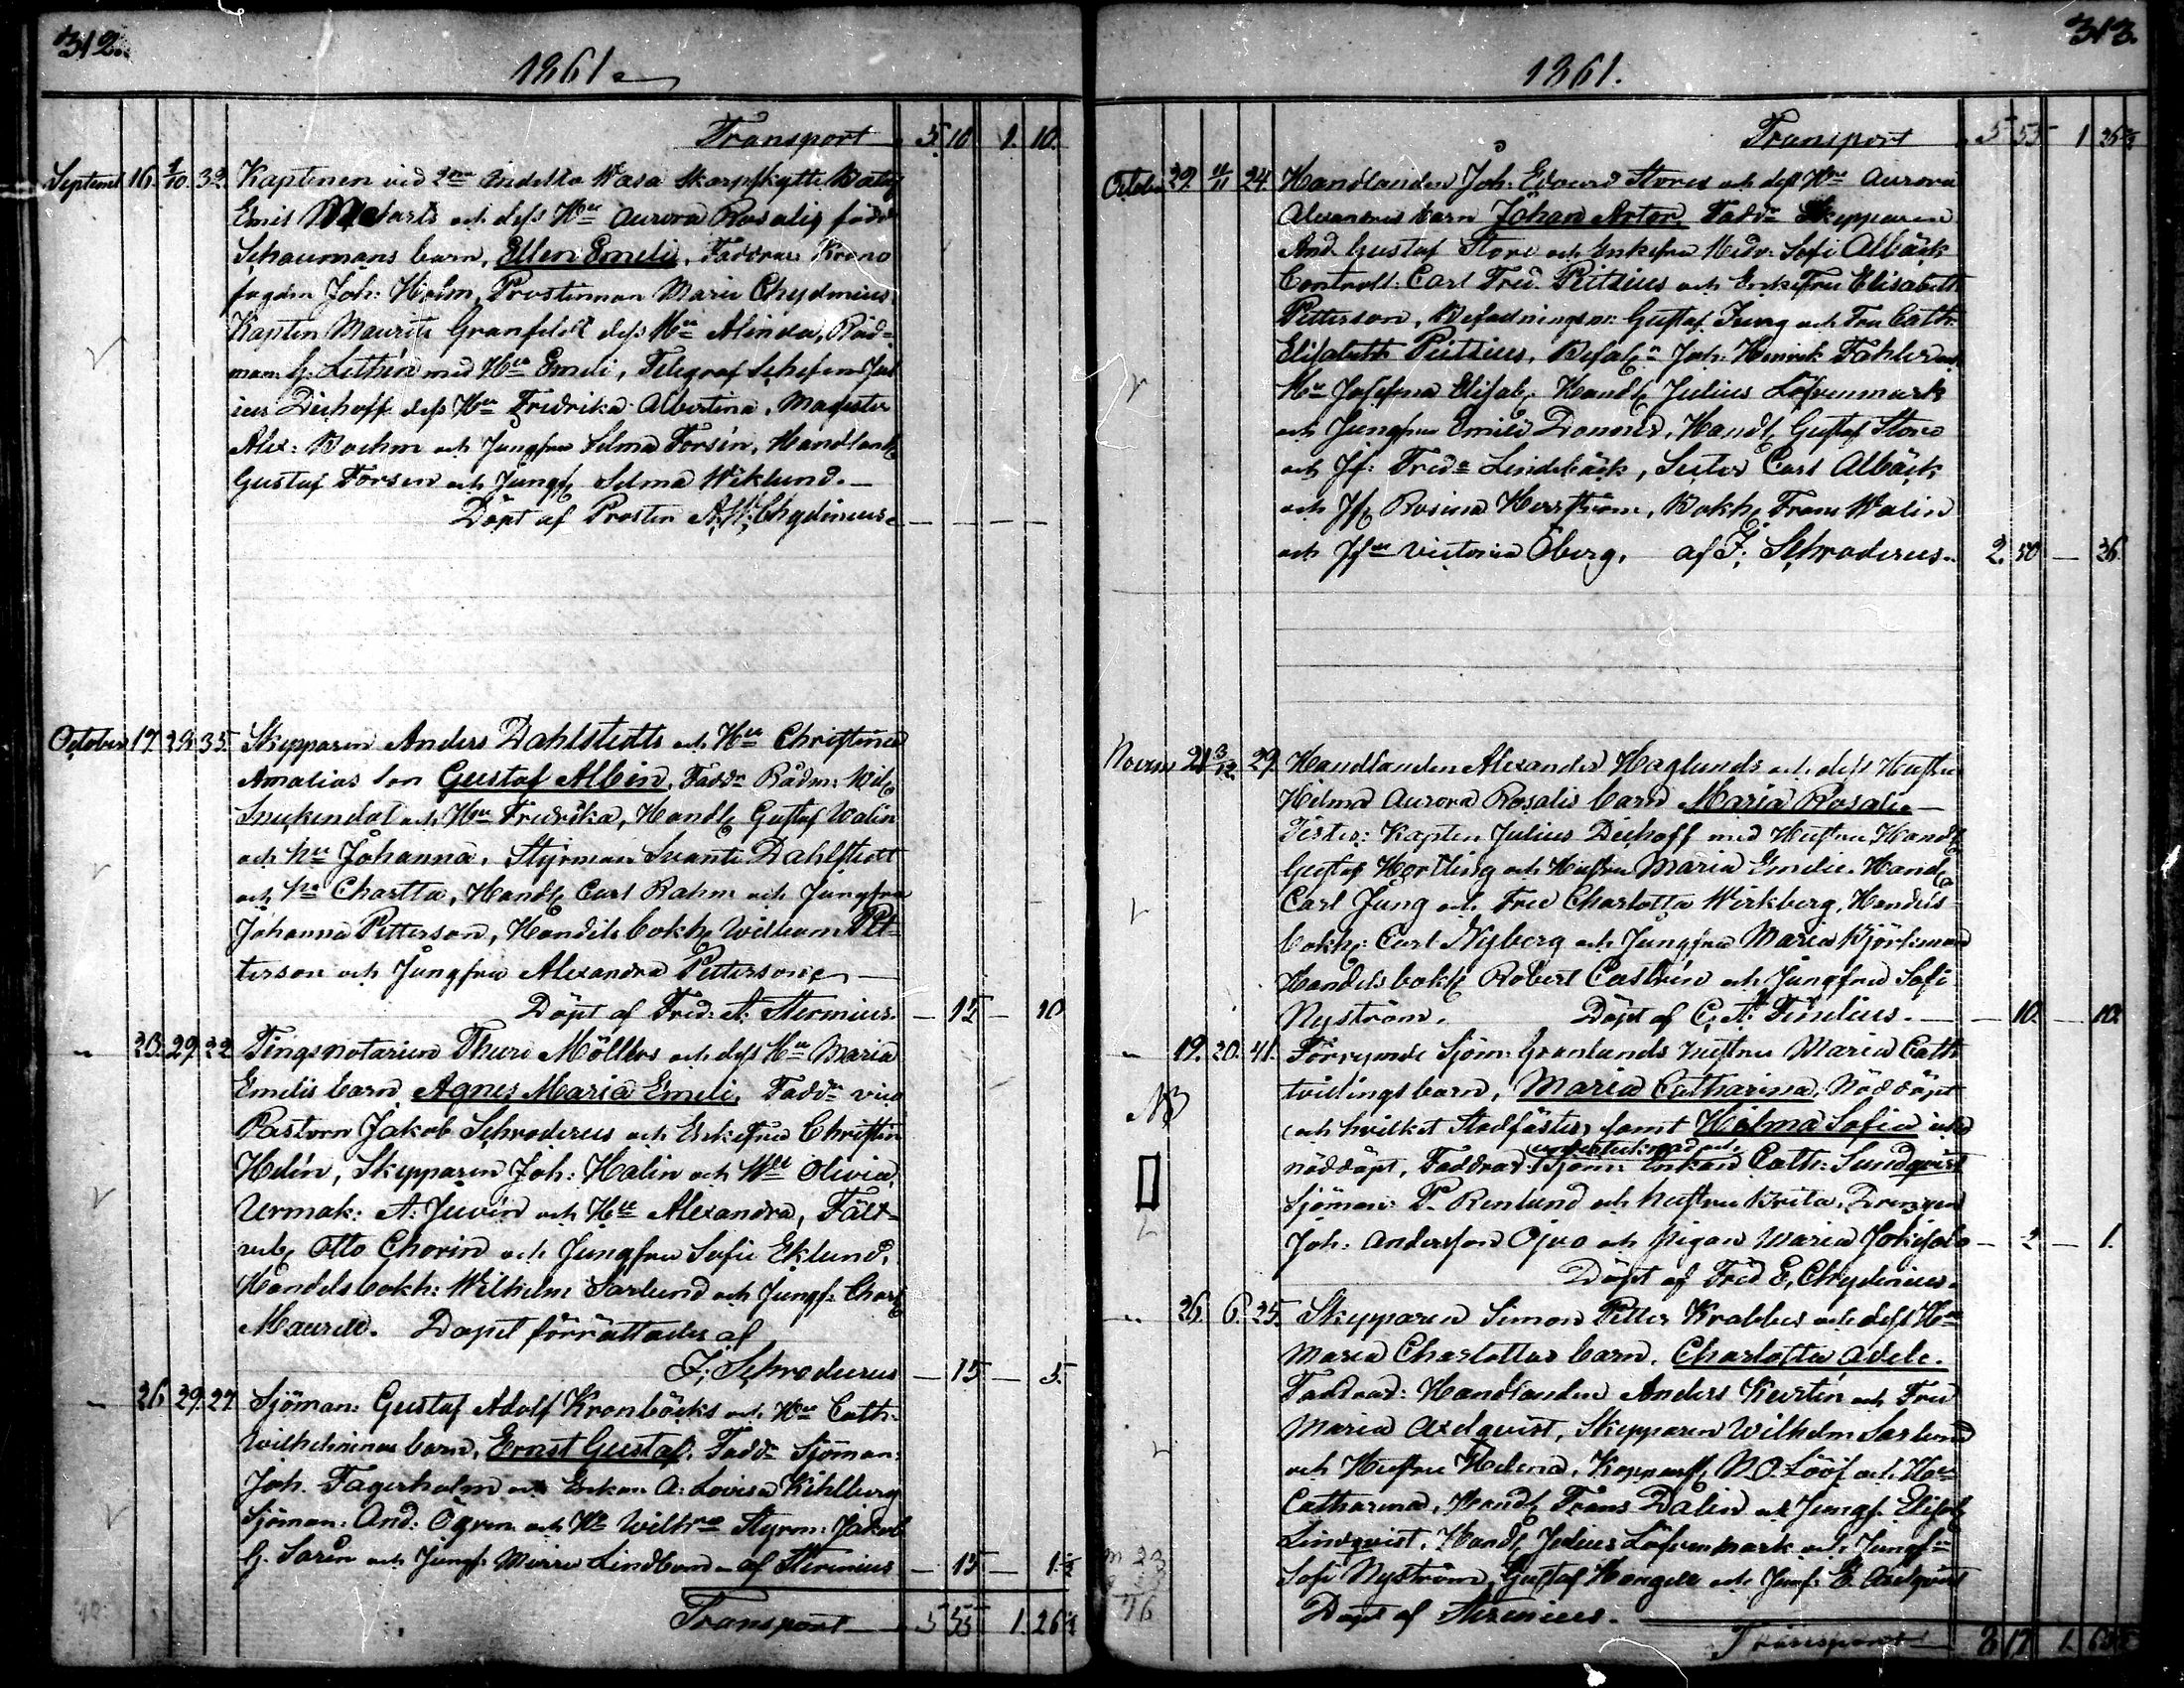 312.
1861
Transport 5. 10 1. 10.
Septemb 16. 4/10. 32 Kaptenen vid 2dra Indelta Wasa Skarpskytte Batlj
Emil och dess Hu Aurora Rosalis född
Schaumans barn, Ellen Emeli, Faddrar Krono
fogden Joh: Holm, Prostinnan Maria Chydenius,
Kapten Mauritz Granfeldt dess Hu Alinda, Råd-
man G. Lethén med Hu Emeli, Telegraf Schefen Jul
ius Dieckhoff dess Hu Fredrika Albertina, Magister
Alex: Boehm och Jungfru Selma Forsén, Handland
Gustaf Forsen och Jungf Selma Wiklund.
Döpt af Prosten A. W. Chydenius. — — — —
October 17 29. 35. Skepparen Anders Dahlstedts och Hu Christina
Amalias son Gustaf Albin, Faddr Rådm: Wilh
Snickendal och Hu Fredrika, Handl Gustaf Walin
och hu Johanna, Styrman Svante Dahlstedt
och hu Charlotta, Handl Carl Rahm och Jungfru
Johanna Petterson, Handels bokh William Pet-
terson och Jungfru Alexandra Petterson,
Döpt af Fred: A: Stermius. — 15 — 10
" 23. 29. 22 Tingsnotarien Thure Möllers och dess Hu Maria
Emelis barn Agnes Maria Emeli, Faddr vice
Pastorn Jakob Schroderus och Enkefru Christin
Helén, Skepparen Joh: Halin och Hu Olivia,
Urmak: A: Juvén och Hu Alexandra, Fält-
Otto Chorin och Jungfru Sofie Eklund,
Handels bokh: Wilhelm Sarlund och Jungf: Charl
Dopet förrättades af
J. Schroderus — 15 — 5.
" 26 29. 27. Sjöman: Gustaf Adolf Kronbäcks och Hu Cath:
Wilhelminas barn, Ernst Gustaf, Faddr Sjöman:
Joh. Fagerholm och Enkan A: Lovisa Kihlberg
Sjöman: And: Ögren och Hu Wilhna Styrm: Jakob
G. Sarén och Jungf Maria Lindbom af Stermius — 15 — 1.
Transport 5 55 1. 26
313.
1861.
Transport 5 55 1 26
October 29. 11/11 24 Handlanden Joh: Edvard Stores och dess Hu Aurora
Alexandras barn Johan Artor, Faddr Skepparen
And. Gustaf Store och Enkefru Hedv: Sofi Albäck
Controll: Carl Fred. Peitzius och Enkefru Elisabeth
Petterson, Befallningsm: Gustaf Jung och Fru Cath:
Elisabeth Peitzius, Joh: Henrik Fahler
Hu Josefina Elisab, Handl Julius Löfvenmark
och Jungfru Emelie Donner, Handl Gustaf Store
och Jf: Freda Lindebäck, Carl Albäck
och Jf Rosina Herrström, Bokh Frans Walin
och Jfru Victoria Öberg, af J. Schroderus. 2. 50 — 36.
Novem 21 3/12. 29. Handlanden Alexander Haglunds och dess Hustru
Hilma Aurora Rosalis barn Maria Rosalie
Testes: Kapten Julius Dieckhoff med Hustru Handl
Gustaf Hertling och Hustru Maria Emelie. Handl
Carl Jung och Fru Charlotta Wirkberg, Handels
bokh: Carl Nyberg och Jungfru Maria Björkman
Handelsbokh Robert Castrén och Jungfru Sofi
Nyström. Döpt af C. A. Finelius. — 10. — 10.
" 19. 20. 41. Förrymde Sjöm: Granlunds hustru Maria Cath:
tvillingsbarn, Maria Catharina, Nöddöpt
NB
och hvilket stadfästes, samt Hilma Sofia icke
nöddöpt, Faddrar: Sjöm: Enkan Cath: Sundqvist
Sjöman: P. Renlund och hustru Brita, Drengen
Joh: Andersson Ojvo och pigan Maria Jokisalo — 2 — 1.
Döpt af Fred E. Chydenius.
" 26. 6. 25. Skepparen Simon Petter Krabbes och dess Hu
Maria Charlottas barn. Charlotta Adele.
Faddrar: Handlanden Anders Kurtén och Fru
Maria Axelqvist, Skepparen Wilhelm Sarlund
och Hustru Helena, N. O. Lööf och Hu
Catharina, Handl Frans Dalin och Jungf: Elisab
Lindqvist, Handl Julius Löfvenmark och Jungf
Sofi Nyström, Gustaf Hongell och Jungf: E. Axelqvist
Döpt af Stermius.
Transport 8 17 1. 63